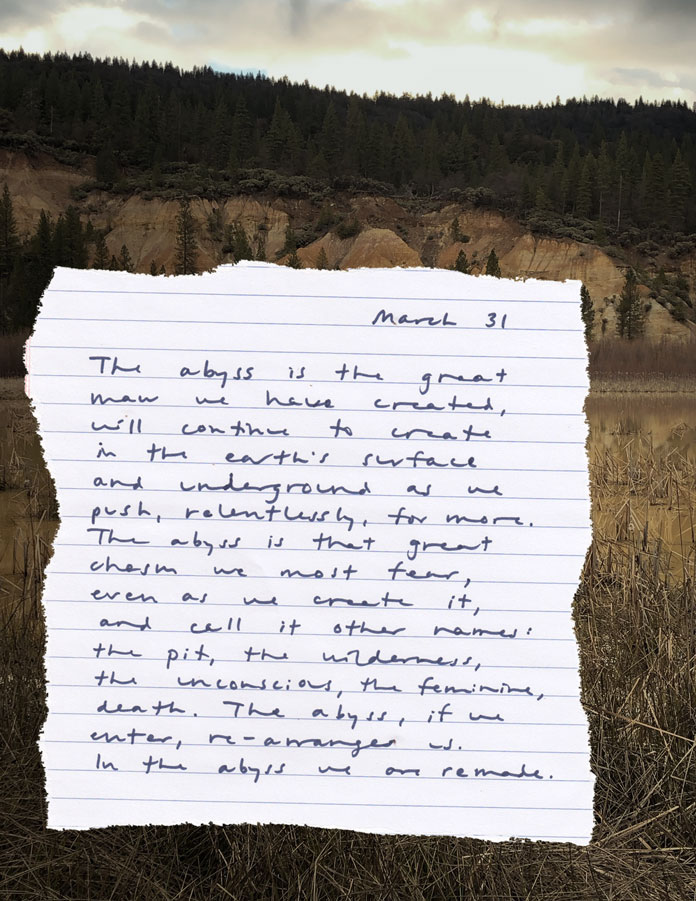 March 31
The abyss is the great
maw we have created,
will continue to create
in the earth's surface
and underground as we
push, relentlessly, for more.
The abyss is that great
chasm we most fear,
even as we create it,
and call it other names:
the pit, the wilderness,
the unconscious, the feminine,
death. The abyss, if we
enter, re-arranges us.
In the abyss we are remade.